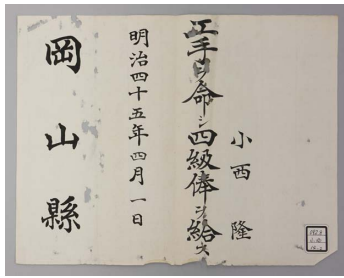 小西 隆
工手ヲ命シ四級俸ヲ給ス
明治四十五年四月一日
岡山縣